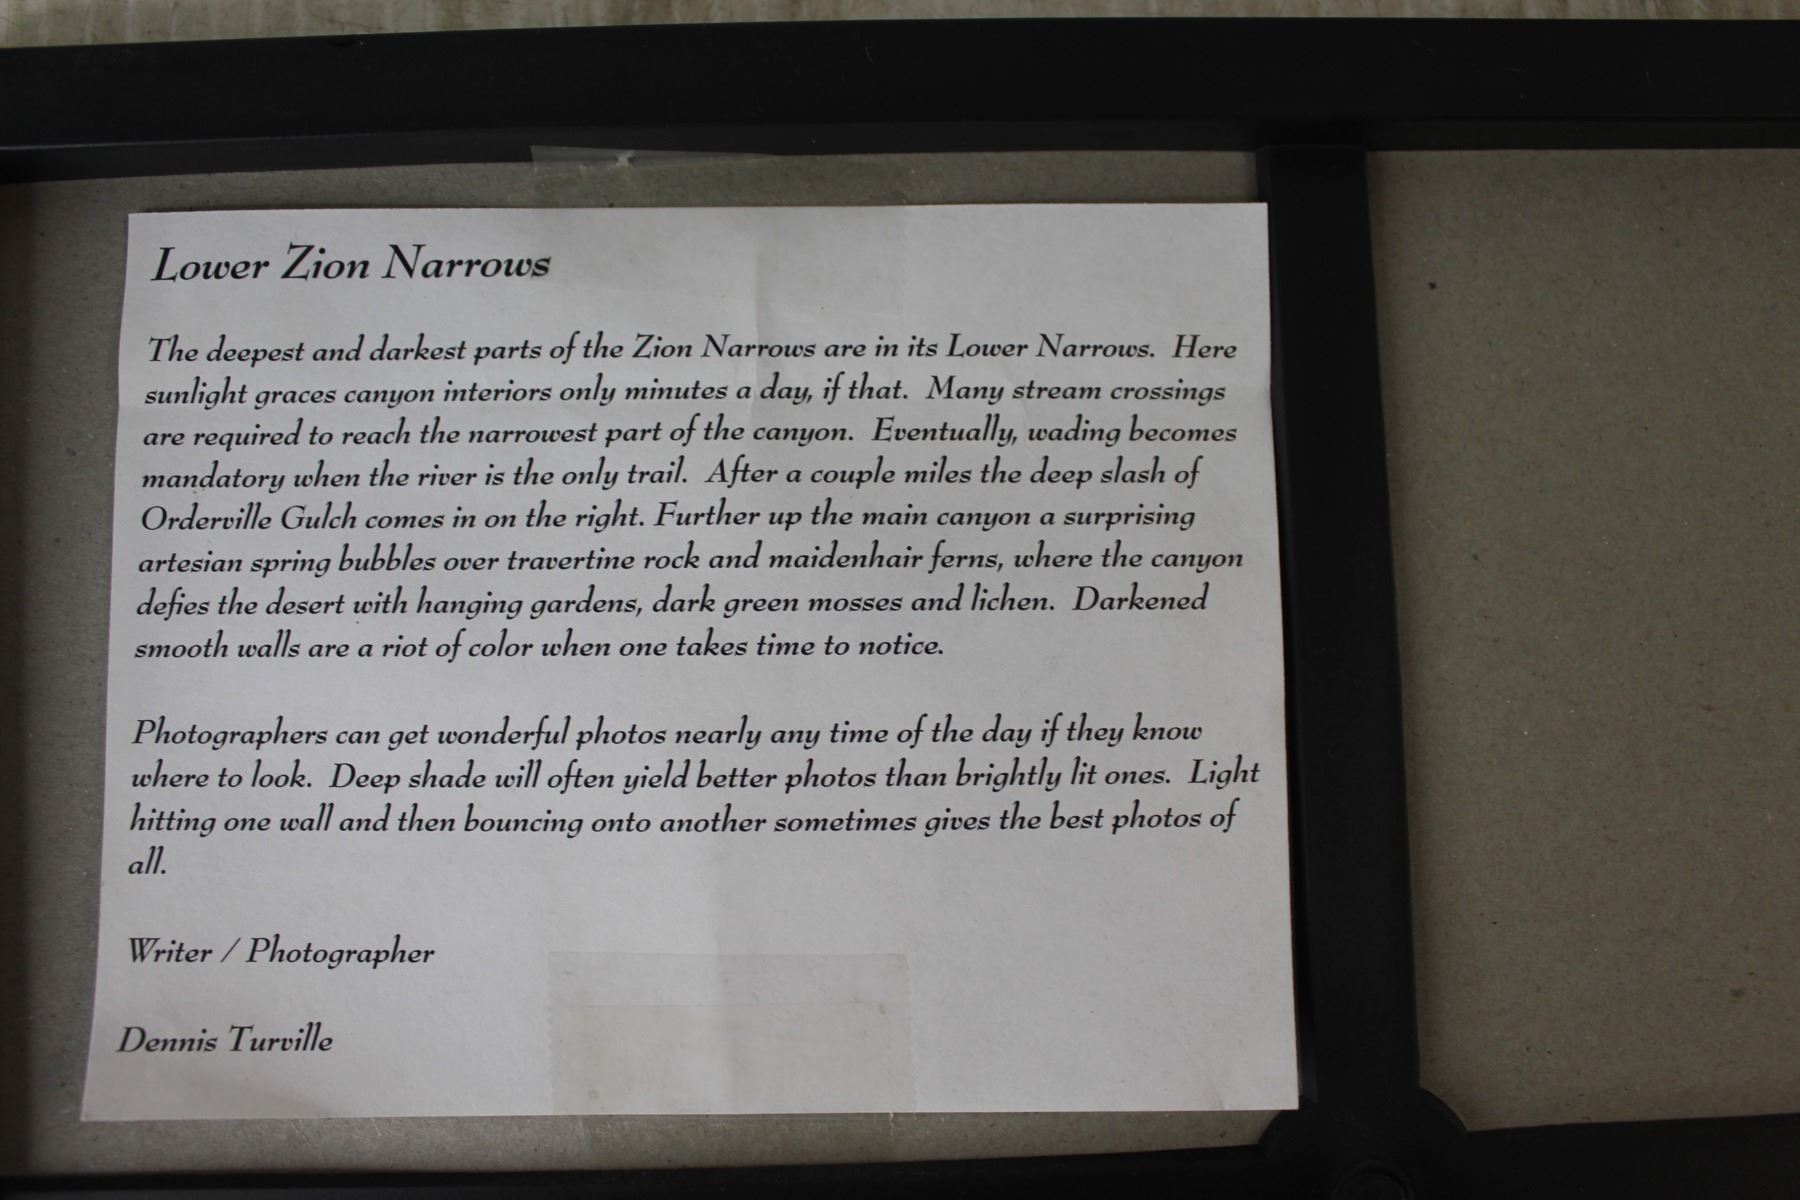 Lower Zion Narrows
The deepest and darkest parts of the Zion Narrows are in its Lower Narrows.  Here
sunlight graces canyon interiors only minutes a day, if that.  Many stream crossings
are required to reach the narrowest part of the canyon.  Eventually, wading becomes
mandatory when the river is the only trail.  After a couple miles the deep slash of
Orderville Gulch comes in on the right. Further up the main canyon a surprising
artesian spring bubbles over travertine rock and maidenhair ferns, where the canyon
defies the desert with hanging gardens, dark green mosses and lichen.  Darkened
smooth walls are a riot of color when one takes time to notice.
Photographers can get wonderful photos nearly any time of the day if they know
where to look.  Deep shade will often yield better photos than brightly lit ones.  Light
hitting one wall and then bouncing onto another sometimes gives the best photos of
all.
Writer / Photographer
Dennis Turville